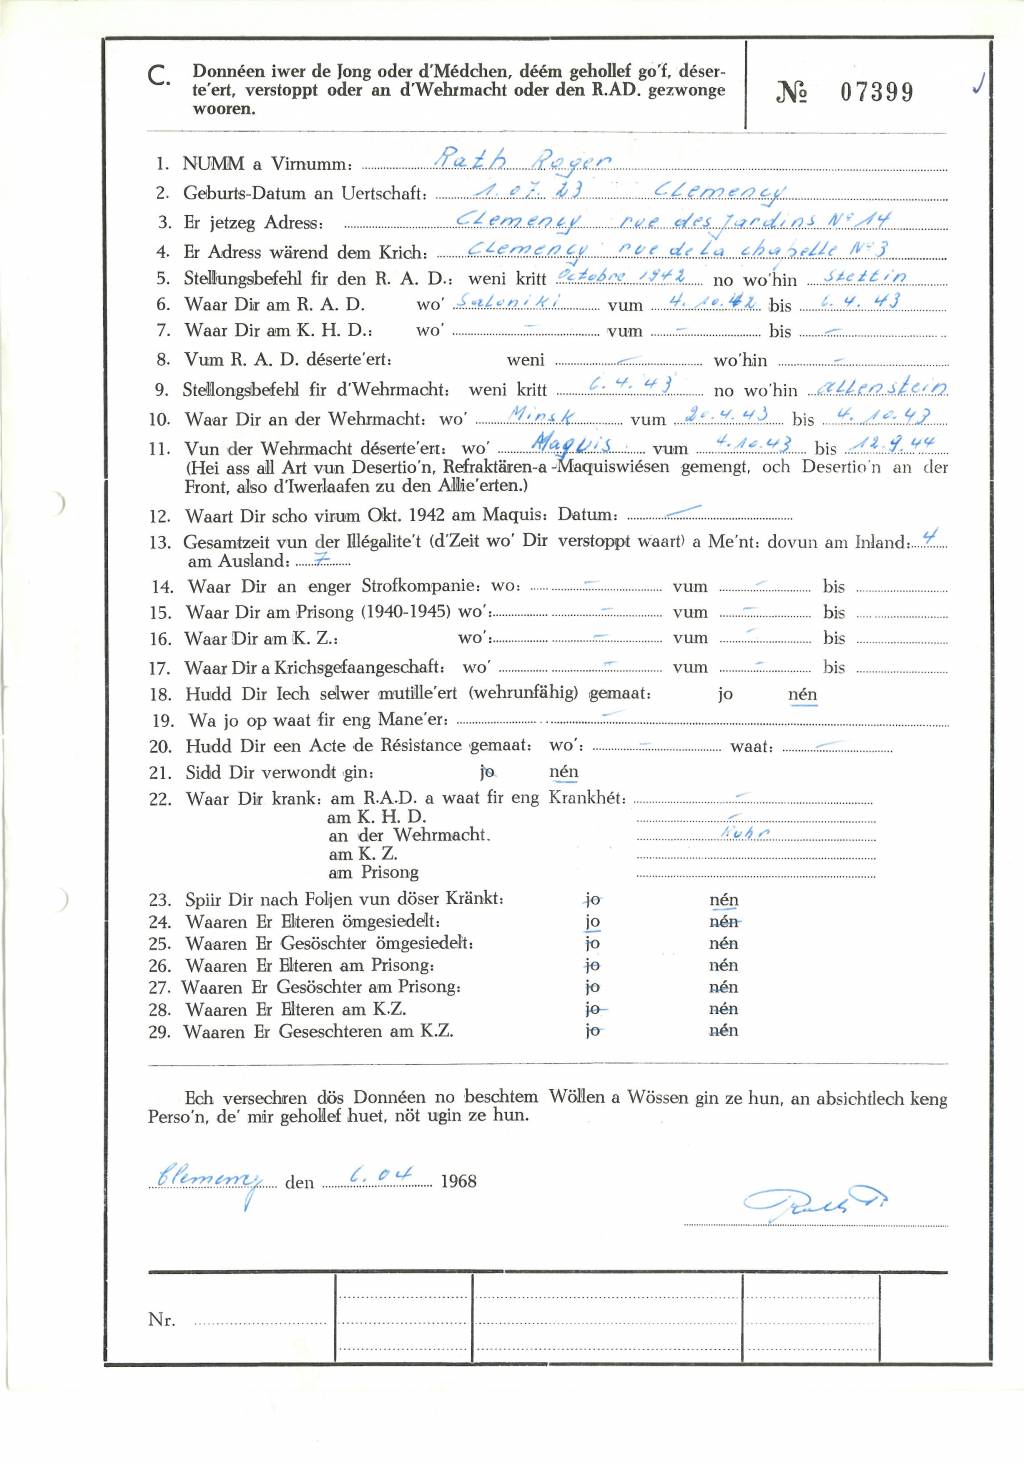 C. Donnéen iwer de Jong oder d'Médchen, déém gehollef go'f, déser-
te'ert, verstoppt oder an d'Wehrmacht oder den R.AD. gezwonge
wooren.
№ 07399
1. NUMM a Virnumm: Rath Roger
2. Geburts-Datum an Uertschaft: 1.07.23 Clemency
3. Er jetzeg Adress: Clemency rue des Jardins N° 14
4. Er Adress wärend dem Krich: Clemency rue de la chapelle N° 3
5. Stellungsbefehl fir den R. A. D.: weni kritt Octobre 1942 no wo'hin Stettin
6. Waar Dir am R. A. D. wo' Saloniki vum 4.10.42 bis 6.4.43
7. Waar Dir am K. H. D.: wo' – vum – bis –
8. Vum R. A. D. déserte'ert: weni – wo'hin –
9. Stellongsbefehl fir d'Wehrmacht: weni kritt 6.4.43 no wo'hin Allenstein
10. Waar Dir an der Wehrmacht: wo' Minsk vum 20.4.43 bis 4.10.43
11. Vun der Wehrmacht déserte'ert: wo' Maquis vum 4.10.43 bis 12.9.44
(Hei ass all Art vun Desertio'n, Refraktären-a-Maquiswiésen gemengt, och Desertio'n an der
Front, also d'Iwerlaafen zu den Allie'erten.)
12. Waart Dir scho virum Okt. 1942 am Maquis: Datum: –
13. Gesamtzeit vun der Illégalite't (d'Zeit wo' Dir verstoppt waart) a Me'nt: dovun am Inland: 4
am Ausland: 7
14. Waar Dir an enger Strofkompanie: wo: – vum – bis
15. Waar Dir am Prisong (1940-1945) wo': – vum – bis
16. Waar Dir am K. Z.: wo': – vum – bis
17. Waar Dir a Krichsgefaangeschaft: wo' – vum – bis
18. Hudd Dir Iech selwer mutille'ert (wehrunfähig) gemaat: jo nén
19. Wa jo op waat fir eng Mane'er: –
20. Hudd Dir een Acte de Résistance gemaat: wo': – waat: –
21. Sidd Dir verwondt gin: jo nén
22. Waar Dir krank: am R.A.D. a waat fir eng Krankhét: –
am K. H. D. –
an der Wehrmacht. Ruhr
am K. Z.
am Prisong
23. Spiir Dir nach Foljen vun döser Kränkt: jo nén
24. Waaren Er Elteren ömgesiedelt: jo nén
25. Waaren Er Gesöschter ömgesiedelt: jo nén
26. Waaren Er Elteren am Prisong: jo nén
27. Waaren Er Gesöschter am Prisong: jo nén
28. Waaren Er Elteren am K.Z. jo nén
29. Waaren Er Geseschteren am K.Z. jo nén
Ech versechren dös Donnéen no beschtem Wöllen a Wössen gin ze hun, an absichtlech keng
Perso'n, de' mir gehollef huet, nöt ugin ze hun.
Clemency den 6.04 1968
Rath R.
Nr.